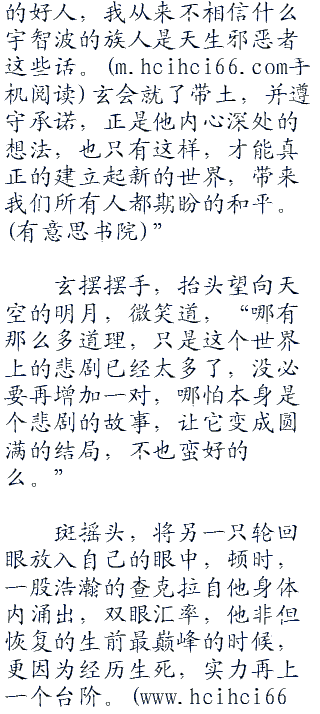 的好人，我从来不相信什么
宇智波的族人是天生邪恶者
这些话。(m.hcihci66.com手
机阅读)玄会就了带土，并遵
守承诺，正是他内心深处的
想法，也只有这样，才能真
正的建立起新的世界，带来
我们所有人都期盼的和平。
(有意思书院)”
玄摆摆手，抬头望向天
空的明月，微笑道，“哪有
那么多道理，只是这个世界
上的悲剧已经太多了，没必
要再增加一对，哪怕本身是
个悲剧的故事，让它变成圆
满的结局，不也蛮好的
么。”
斑摇头，将另一只轮回
眼放入自己的眼中，顿时，
一股浩瀚的查克拉自他身体
内涌出，双眼汇率，他非但
恢复的生前最巅峰的时候，
更因为经历生死，实力再上
一个台阶。(www.hcihci66